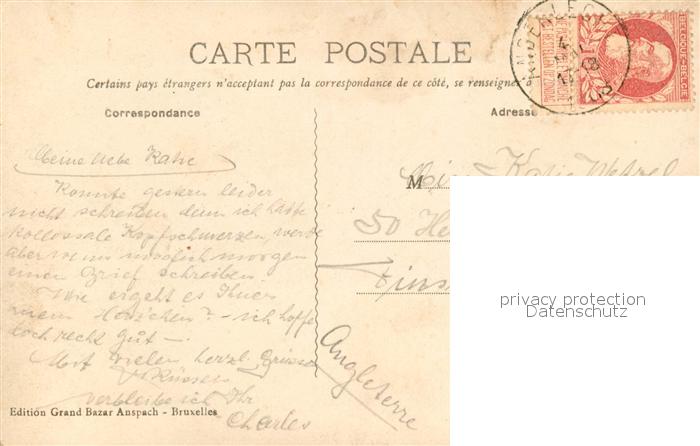 CARTE POSTALE
Certains pays étrangers n'acceptant pas la correspondance de ce côté, se renseigner
Correspondance
Adresse
BELGIQUE-BELGIE
ANDERLECHT
Meine liebe Katie
Konnte gestern leider
nicht schreiben denn ich hatte
kollossale Kopfschmerzen, werde
aber wenn möglich morgen
einen Brief schreiben.
Wie ergeht es Ihnen
mein Herzchen? - ich hoffe
doch recht gut -
Mit vielen herzl. Grüssen
& Küssen
verbleibe ich Ihr
Charles
M Miss Katie
50 He
Fins
Angleterre
privacy protection
Datenschutz
Edition Grand Bazar Anspach - Bruxelles